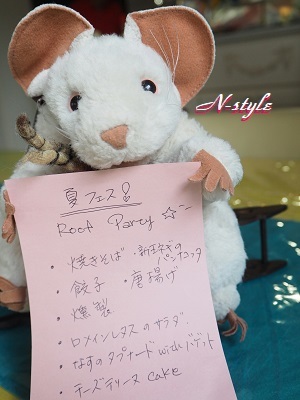 N-style
夏フェス!
Roof Party ☆
・焼きそば ・新玉ネギの
パンナコッタ
・餃子 ・唐揚げ
・燻製
・ロメインレタスのサラダ
・なすのタプナード with バゲット
・チーズテリーヌ CAKE